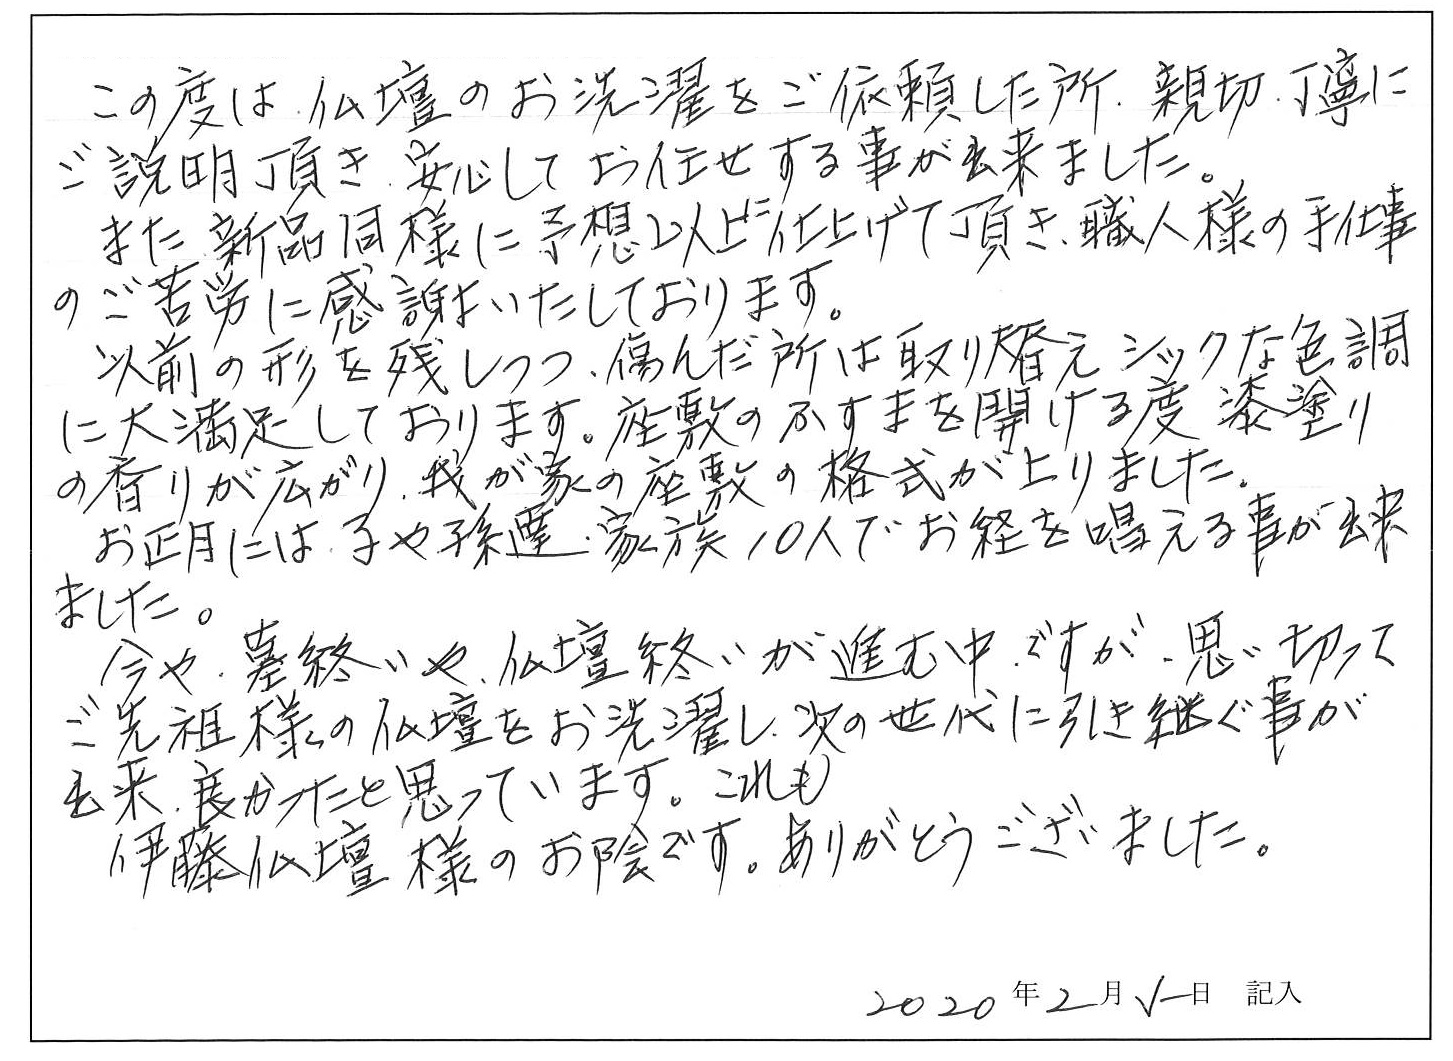 この度は、仏壇のお洗濯をご依頼した所、親切、丁寧に
ご説明頂き、安心してお任せする事が出来ました。
また、新品同様に予想以上に仕上げて頂き、職人様の手仕事
のご苦労に感謝をいたしております。
以前の形を残しつつ、傷んだ所は取り替えシックな色調
に大満足しております。座敷のふすまを開ける度、漆塗り
の香りが広がり、我が家の座敷の格式が上りました。
お正月には、子や孫達、家族10人でお経を唱える事が出来
ました。
今や、墓終いや、仏壇終いが進む中、ですが、思い切って
ご先祖様の仏壇をお洗濯し、次の世代に引き継ぐ事が
出来、良かったと思っています。これも
伊藤仏壇様のお陰です。ありがとうございました。
2020年2月 日 記入